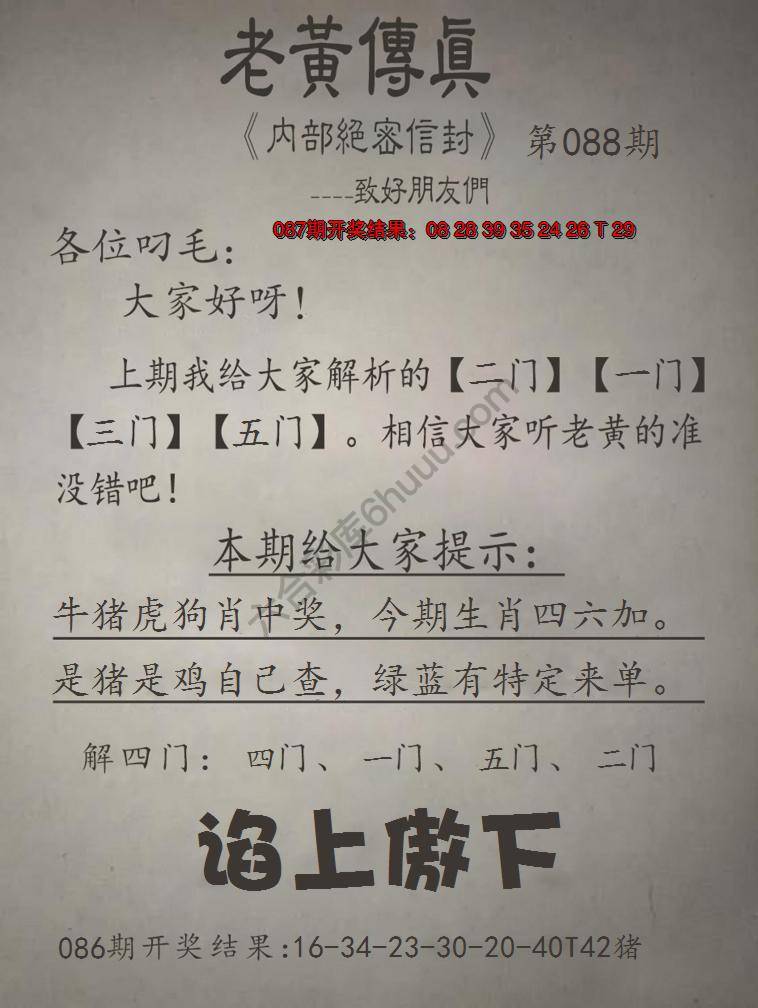 老黃傳眞
《内部絕密信封》 第088期
----致好朋友們
087期开奖结果：08 28 39 35 24 26 T 29
各位叼毛：
大家好呀！
上期我给大家解析的【二门】【一门】
【三门】【五门】。相信大家听老黄的准
没错吧！
本期给大家提示：
牛猪虎狗肖中奖，今期生肖四六加。
是猪是鸡自己查，绿蓝有特定来单。
解四门： 四门、 一门、 五门、 二门
谄上傲下
086期开奖结果:16-34-23-30-20-40T42猪
六合彩库6huuu.com